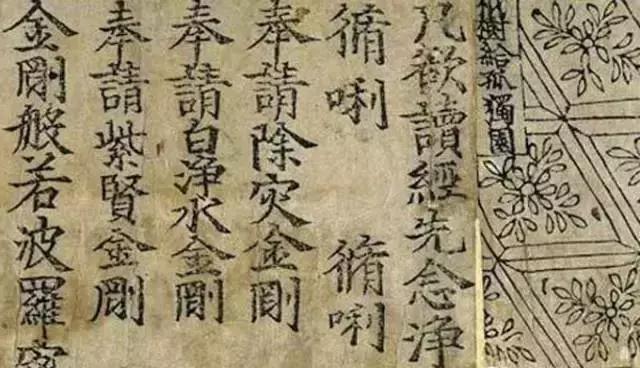 樹給孤獨園
凡欲讀經先念淨
脩唎 脩唎
奉請除灾金剛
奉請白淨水金剛
奉請紫賢金剛
金剛般若波羅